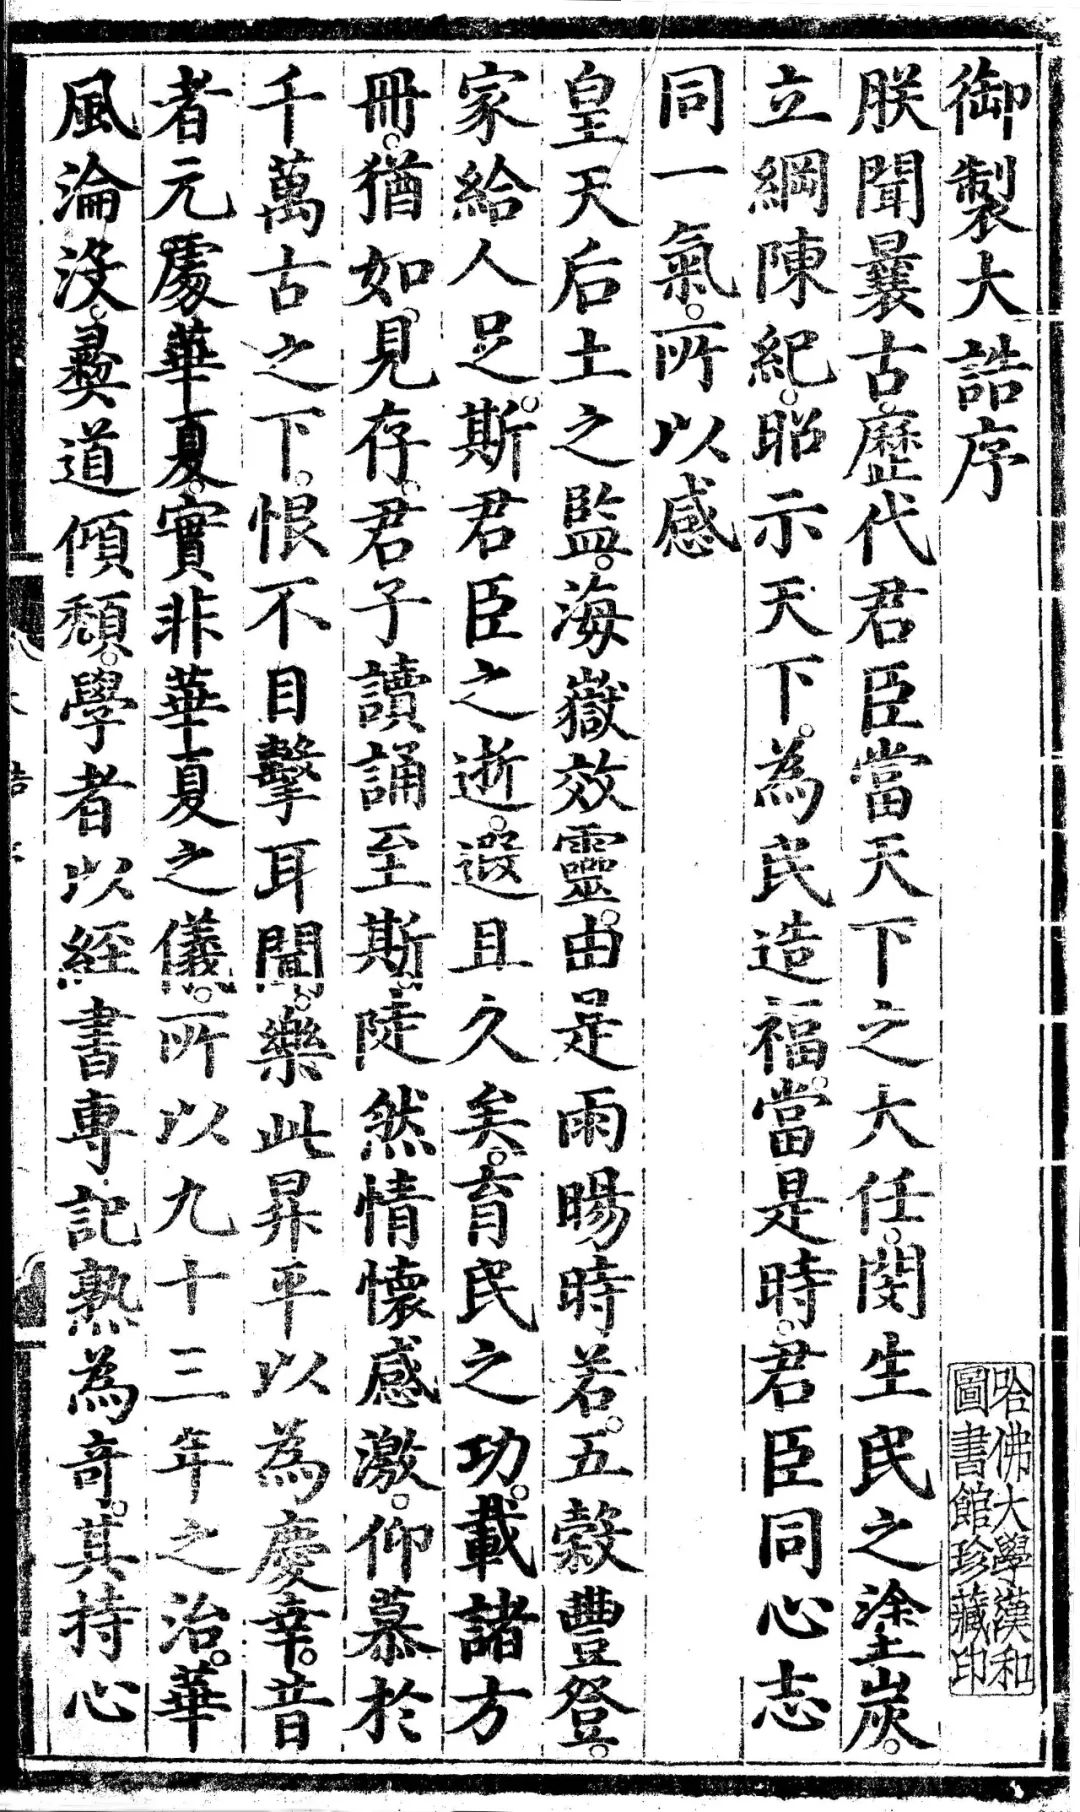 御製大誥序
朕聞曩古歷代君臣當天下之大任。閔生民之塗炭。
立綱陳紀。昭示天下。為民造福。當是時。君臣同心志
同一氣。所以感
皇天后土之監。海嶽效靈。由是雨暘時若。五穀豐登。
家給人足。斯君臣之逝。遐且久矣。育民之功。載諸方
冊。猶如。見存。君子讀誦至斯。陡然情懷感激。仰慕於
千萬古之下。恨不目擊耳聞。樂此昇平以為慶幸。昔
者元處華夏。實非華夏之儀。所以九十三年之治。華
風淪沒。彝道傾頹。學者以經書專記熟為奇。其持心
哈佛大學漢和
圖書館珍藏印